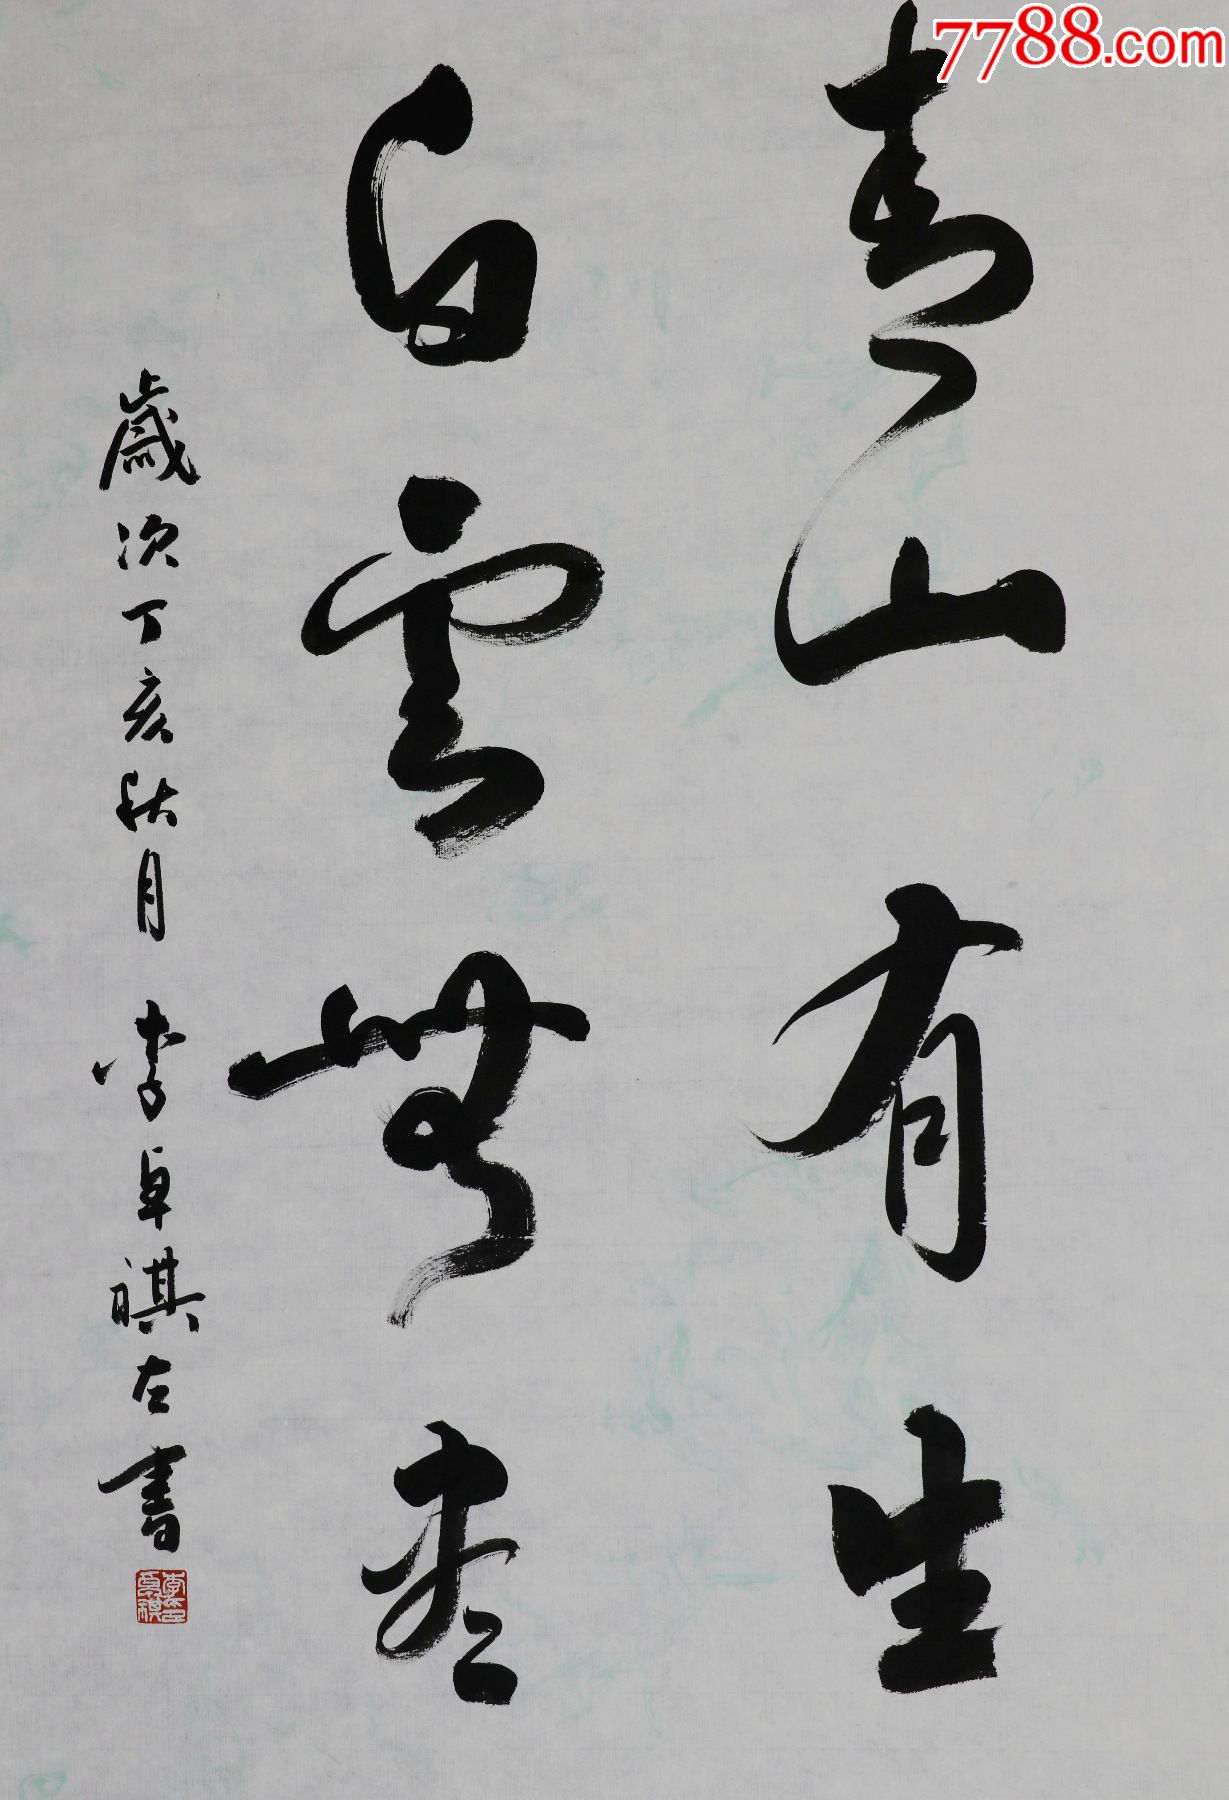 7788.com
青山有生
白雲無盡
歲次丁亥秋月 李卓祺左書